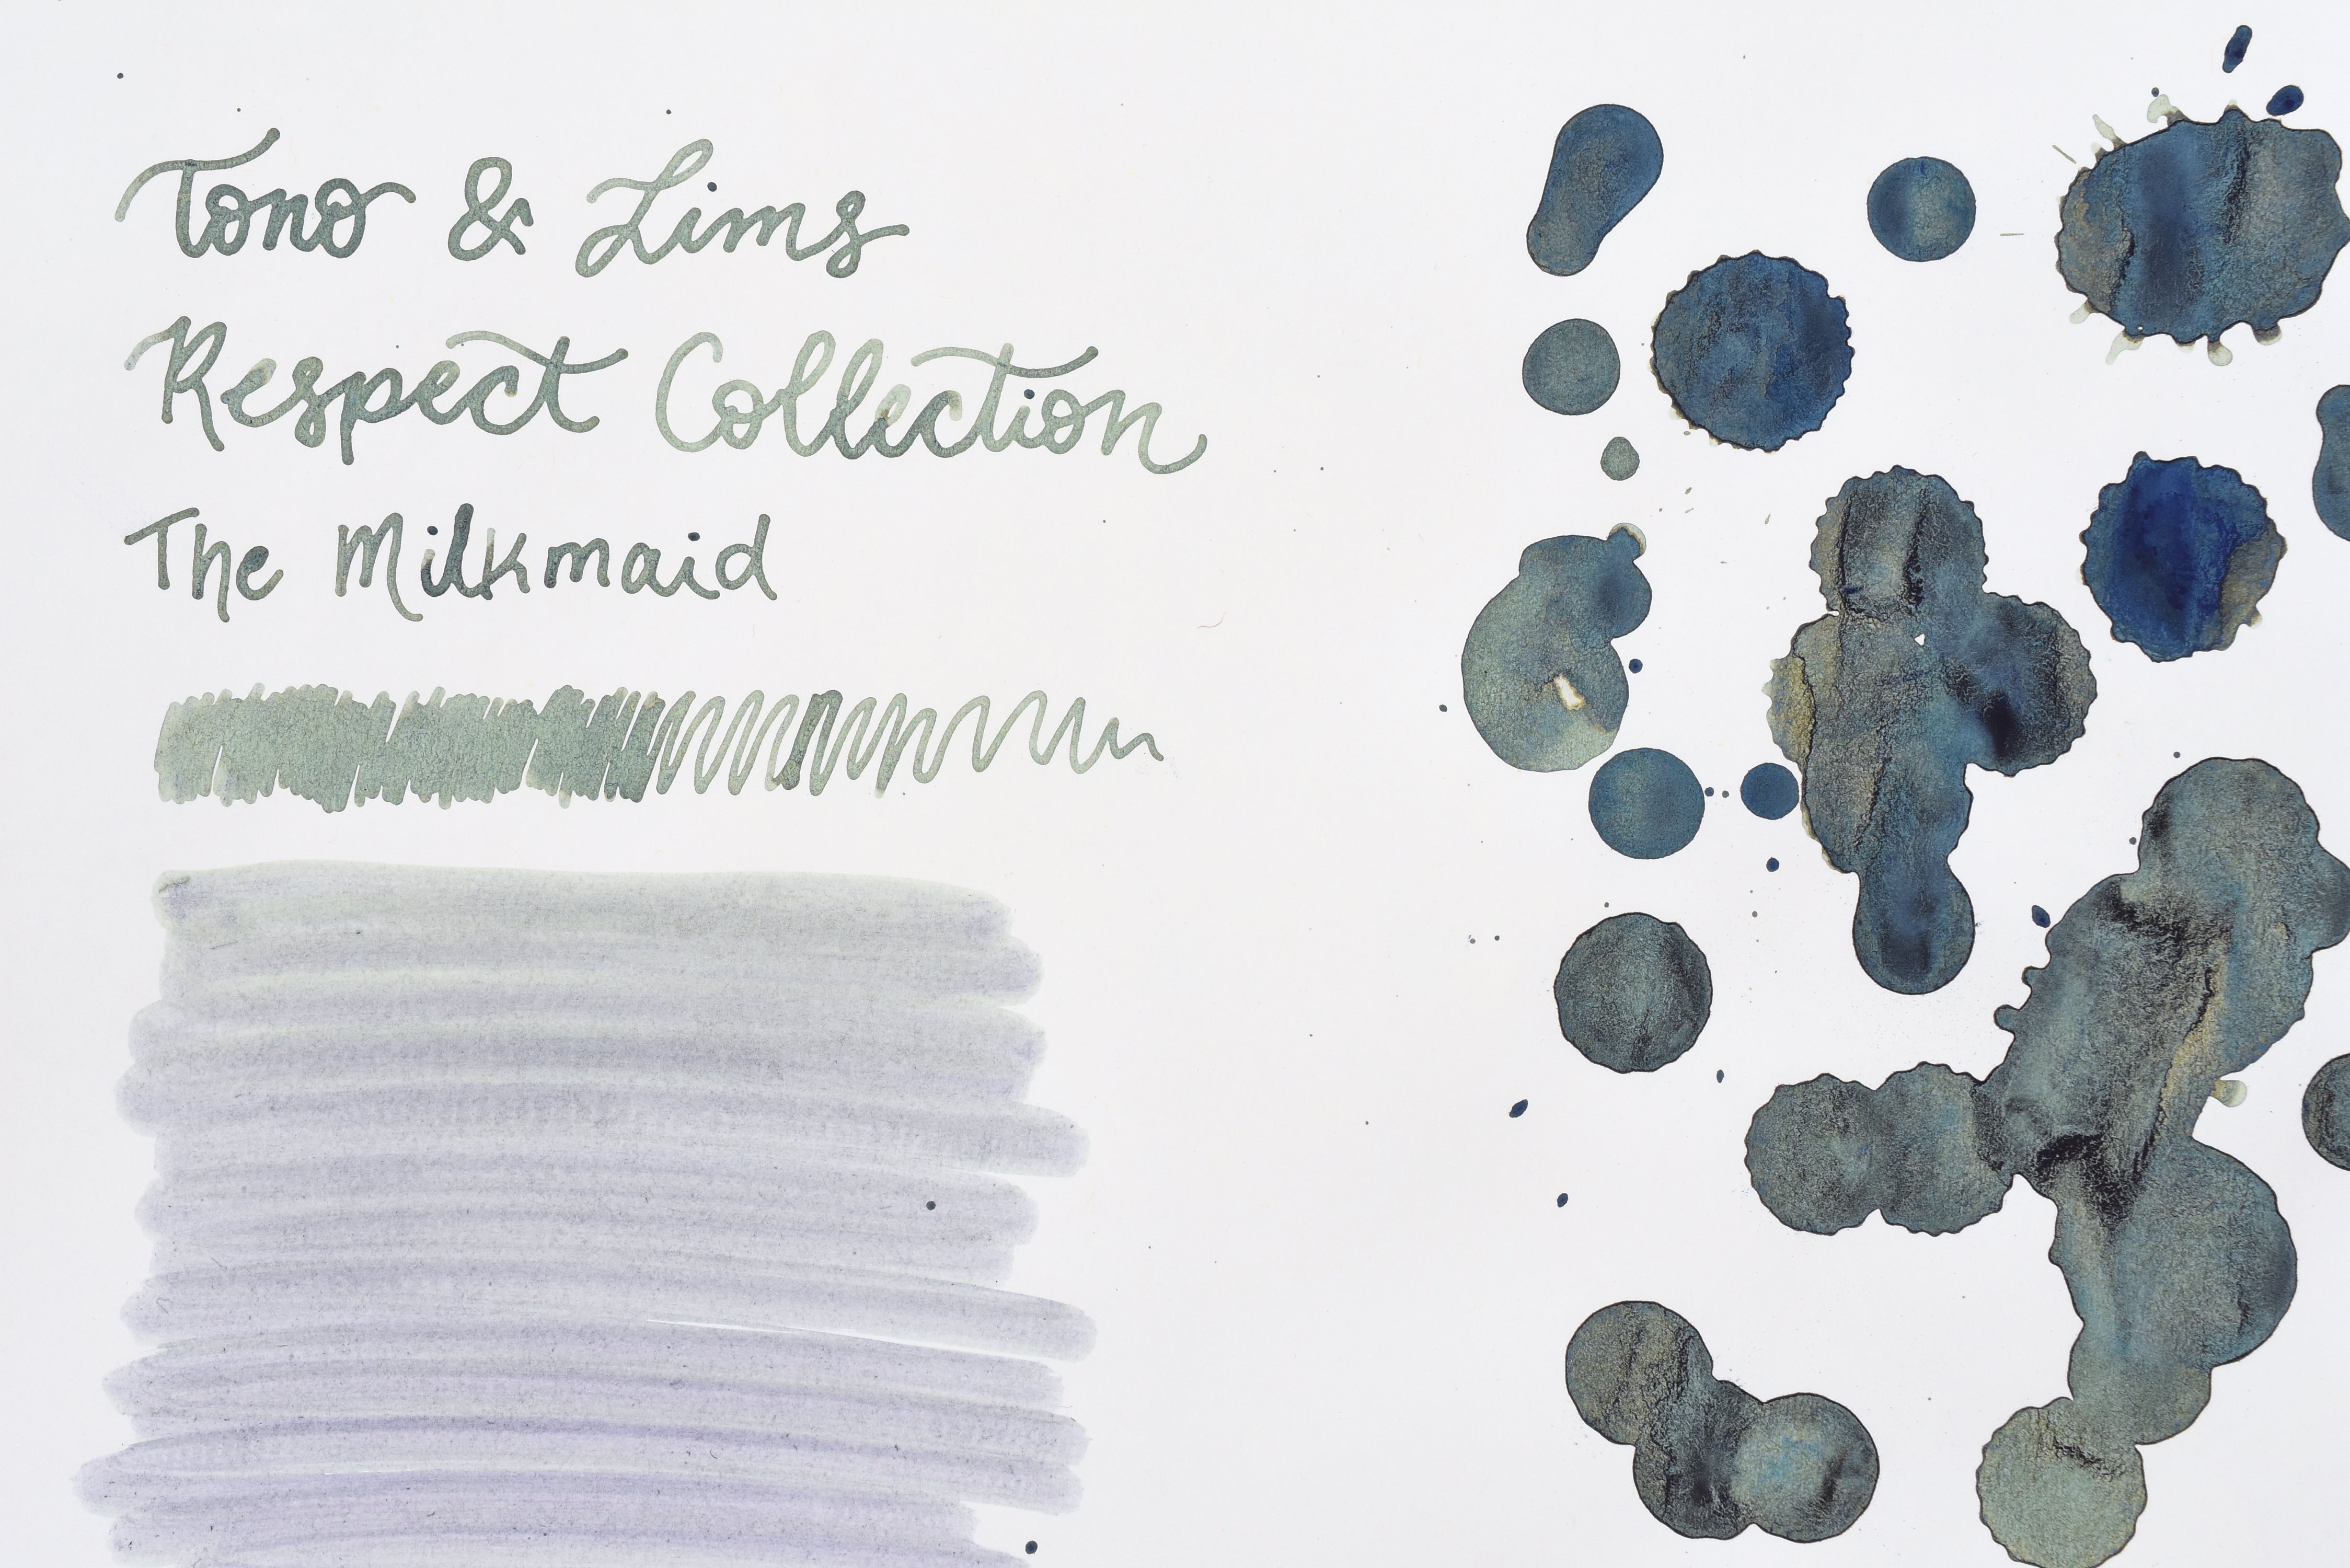 Tono & Lims
Respect Collection
The Milkmaid